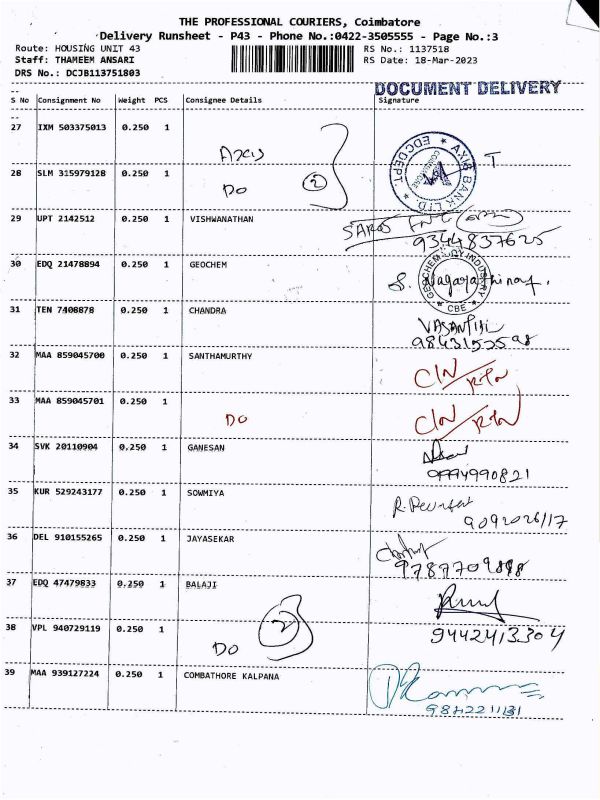 THE PROFESSIONAL COURIERS, Coimbatore
Delivery Runsheet - P43 - Phone No.:0422-3505555 - Page No.:3
Route: HOUSING UNIT 43 RS No.: 1137518
Staff: THAMEEM ANSARI RS Date: 18-Mar-2023
DRS No.: DCJB113751803
DOCUMENT DELIVERY
S No Consignment No Weight PCS Consignee Details Signature
27 IXM 503375013 0.250 1 Axis
28 SLM 315979128 0.250 1 Do 2
AXIS BANK LTD. EDC DEPT
29 UPT 2142512 0.250 1 VISHWANATHAN
9344837625
30 EDQ 21478894 0.250 1 GEOCHEM
CBE
31 TEN 7408878 0.250 1 CHANDRA
32 MAA 859045700 0.250 1 SANTHAMURTHY
33 MAA 859045701 0.250 1 Do
34 SVK 20110904 0.250 1 GANESAN
9994990821
35 KUR 529243177 0.250 1 SOWMIYA
36 DEL 910155265 0.250 1 JAYASEKAR
37 EDQ 47479833 0.250 1 BALAJI
38 VPL 940729119 0.250 1 Do 2
9442413304
39 MAA 939127224 0.250 1 COMBATHORE KALPANA